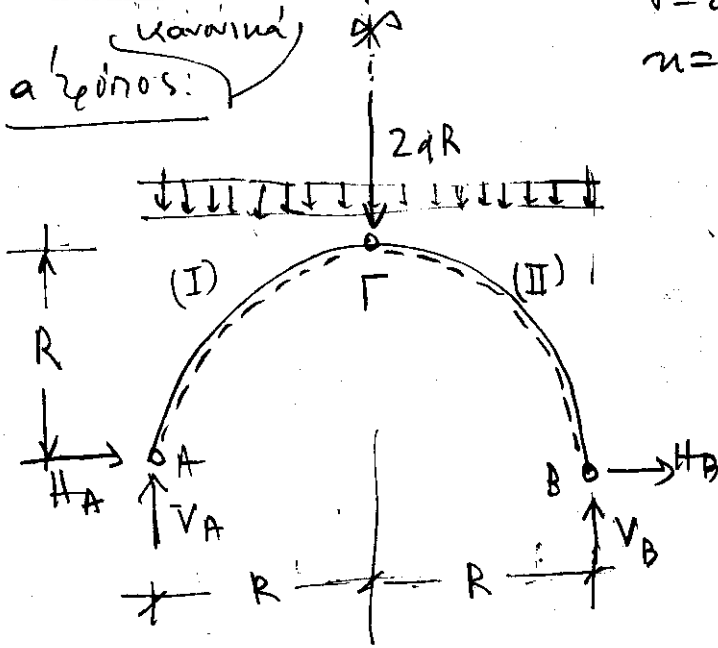 κανονικά
α' τρόπος:
2qR
(I)
(II)
Γ
R
A
B
H_A
V_A
H_B
V_B
R
R